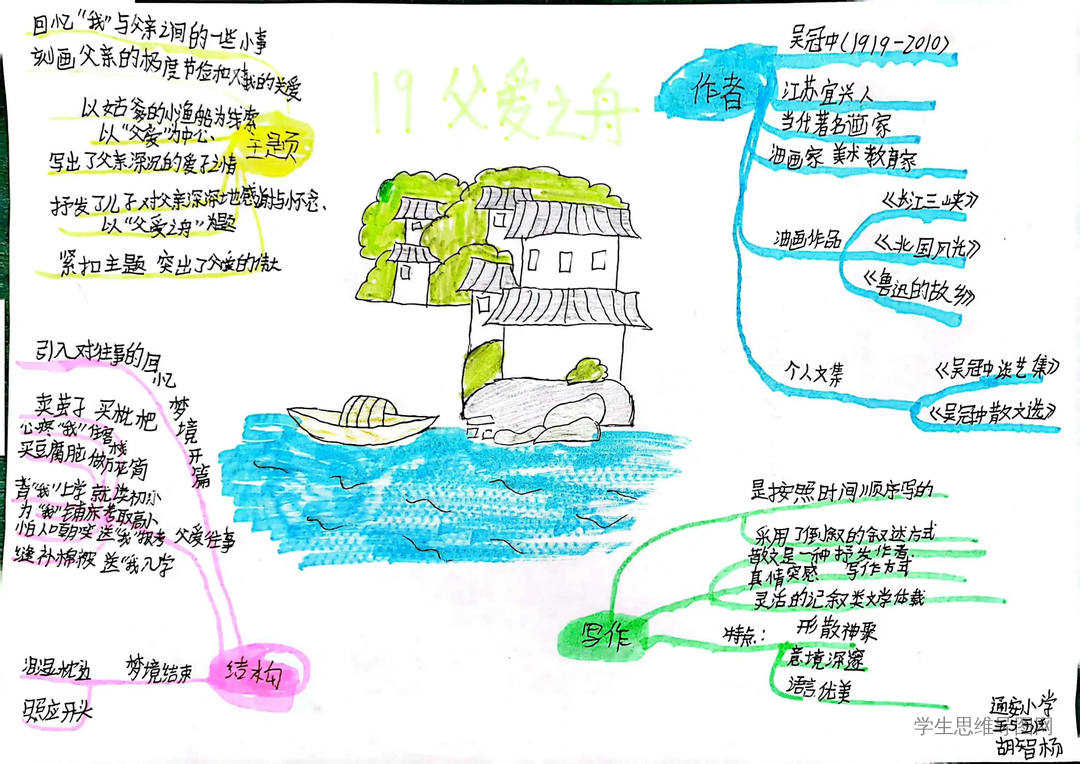 19 父爱之舟
主题
回忆“我”与父亲之间的一些小事
刻画父亲的极度节俭和对我的关爱
以姑爹的小渔船为线索
以“父爱”为中心、
写出了父亲深沉的爱子之情
抒发了儿子对父亲深深地感谢与怀念、
以“父爱之舟”为题
紧扣主题 突出了父爱的伟大
作者
吴冠中(1919-2010)
江苏宜兴人
当代著名画家
油画家 美术教育家
油画作品
《长江三峡》
《北国风光》
《鲁迅的故乡》
个人文集
《吴冠中谈艺集》
《吴冠中散文选》
结构
梦境开篇
引入对往事的回忆
父爱往事
卖茧子 买枇杷
心疼“我”住客栈
买豆腐脑 做万花筒
背“我”上学 就读初小
为“我”铺床 考取高小
怕人嘲笑 送“我”报考
缝补棉被 送“我”入学
梦境结束
泪湿枕边
照应开头
写作
是按照时间顺序写的
采用了倒叙的叙述方式
散文是一种抒发作者、
真情实感 写作方式
灵活的记叙类文学体裁
特点：
形散神聚
意境深邃
语言优美
通安小学
胡智杨
学生思维导图网